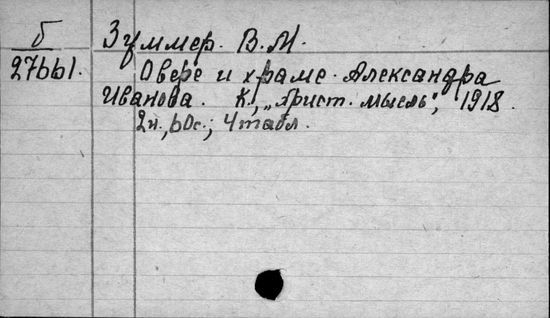 б
27661.
Зуммер. В.М.
Овере и храме Александра
Иванова. К., „Христ. мысль", 1918.
2н., 60с.; 4 табл.